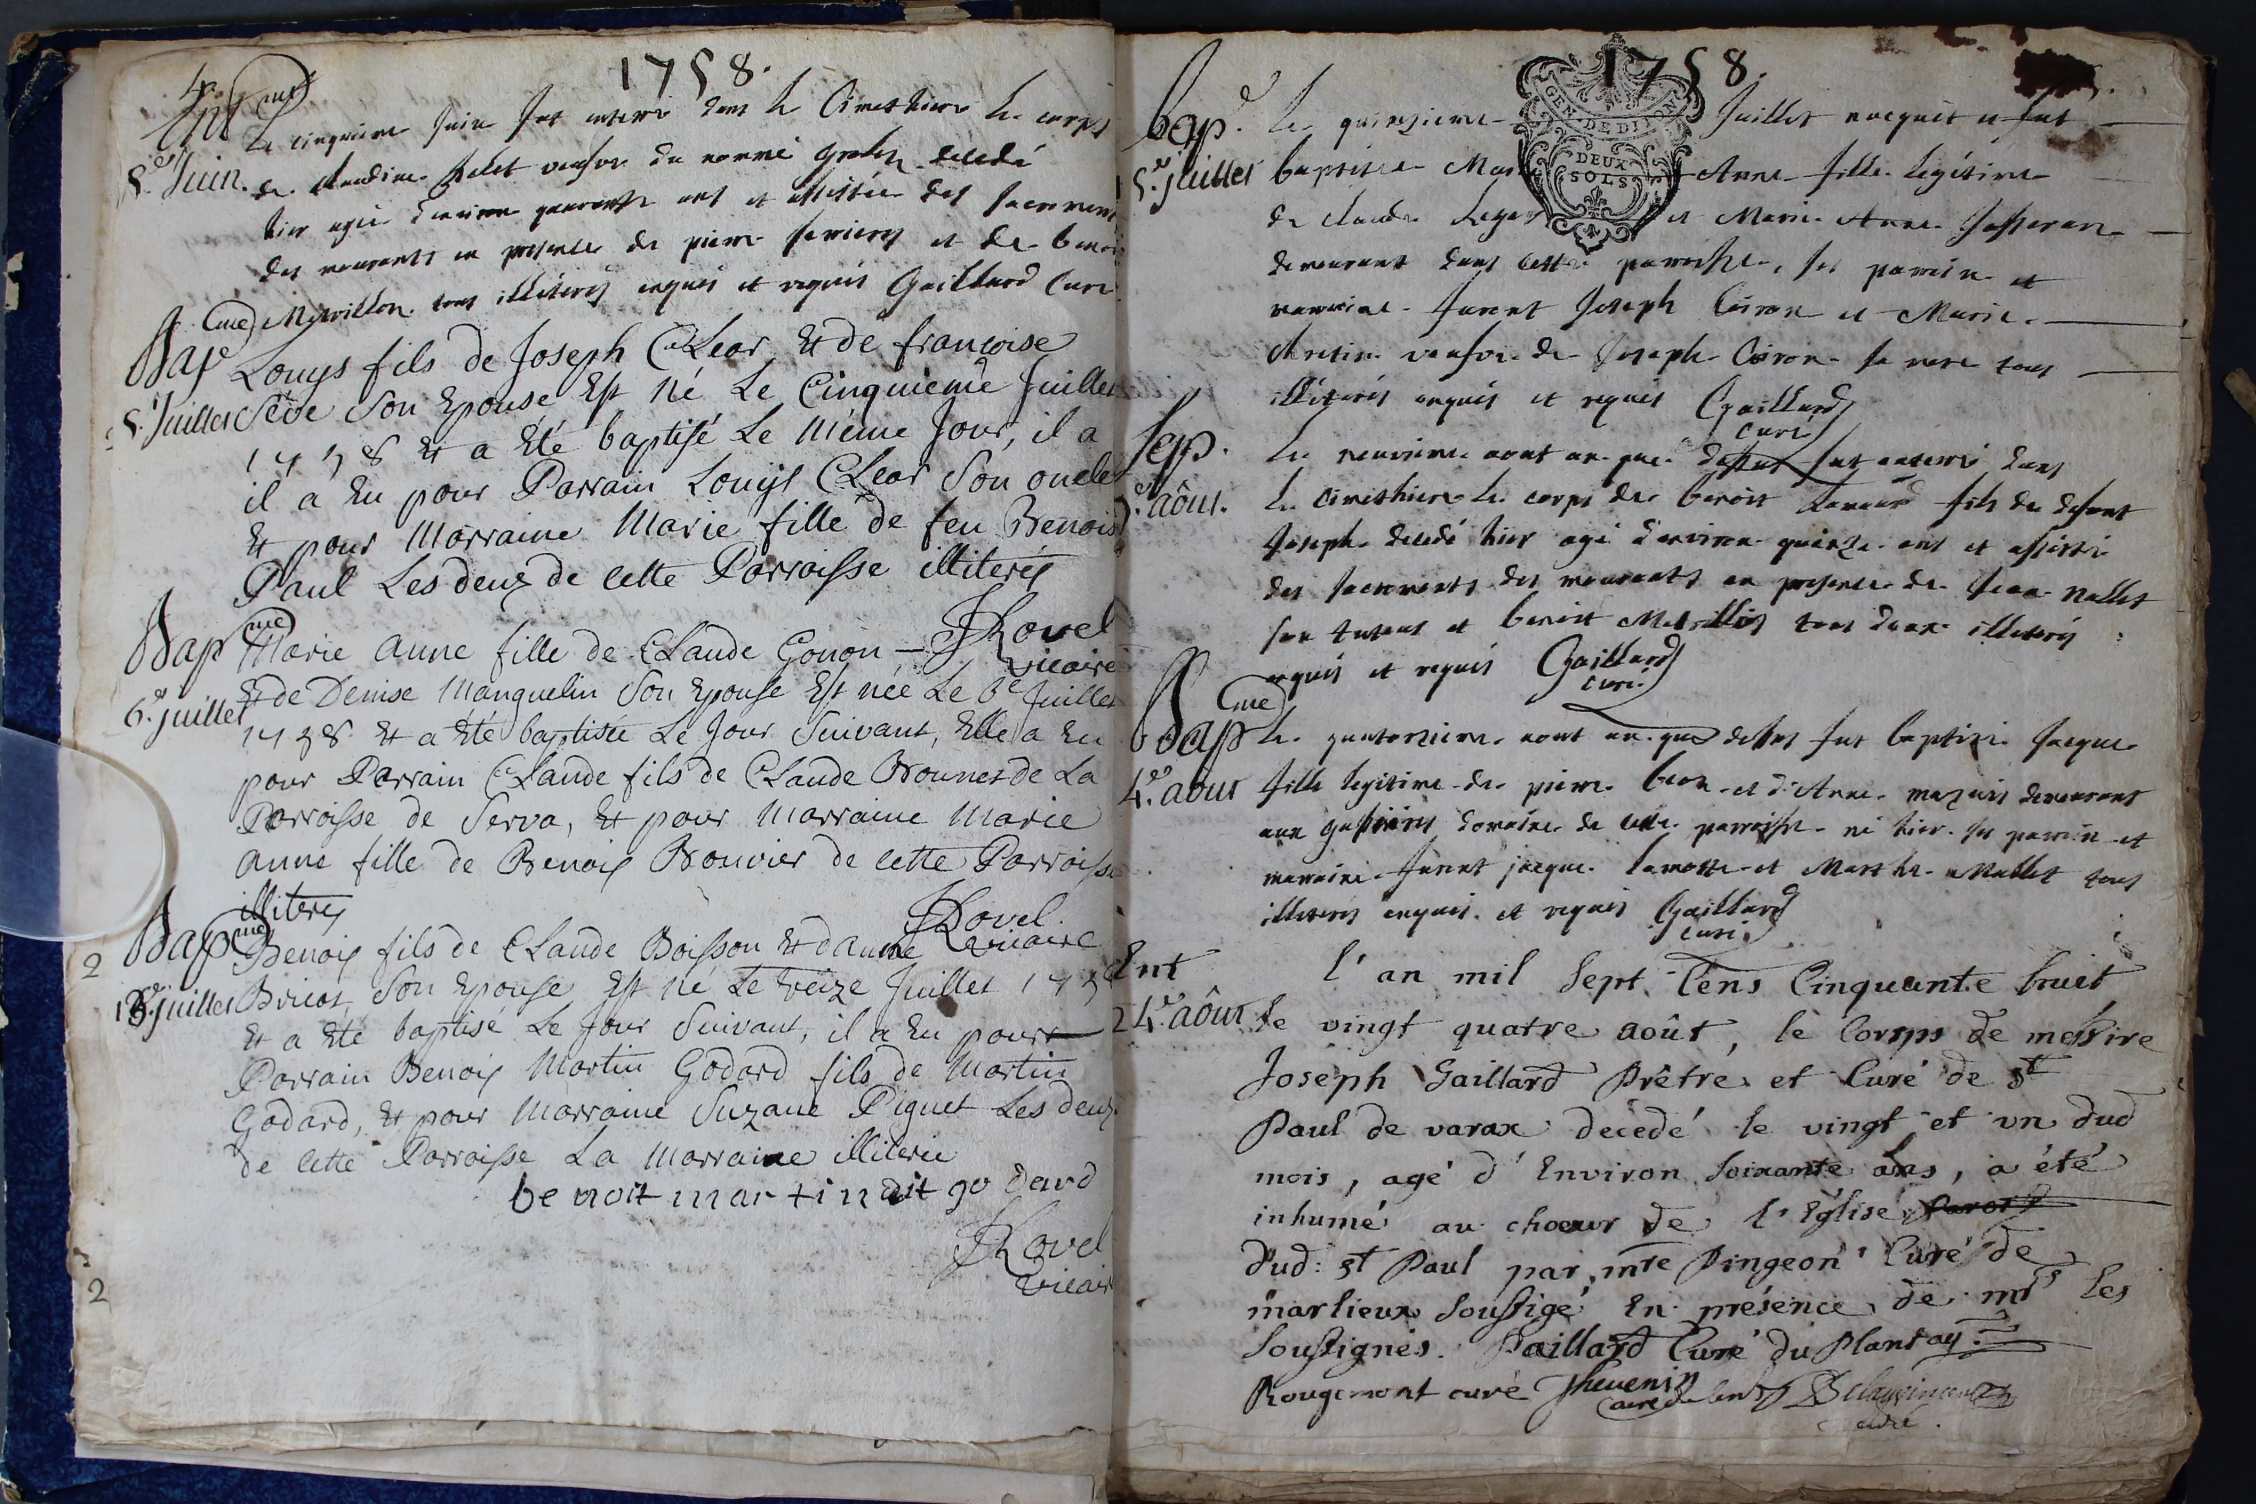 1758.
Ent
Le cinquieme Juin fut enterré dans le Cimethiere le corps
5.e Juin.
de Claudine veufve du nommé decedé
hier agée d'environ quarante ans et assistée des sacrements
des mourants en presence de pierre et de benoit
tous illiterés enquis et requis Gaillard Curé
Bap me
Louys fils de Joseph CLear, Et de francoise
5.e Juillet
Seve Son Epouse Est Né Le Cinquieme Juillet
1758 Et a Eté baptisé Le Même Jour, il a
il a Eu pour Parrain Louys CLear Son oncle
Et pour Marraine Marie fille de feu Benois
Paul Les deux de cette Parroisse illiterés
JRovel
vicaire
Bap me
Marie Anne fille de CLaude Gonon
6.e juillet
Et de Denise Manguelin Son Epouse Est née Le 6e Juillet
1758 Et a Eté baptisée Le Jour Suivant, Elle a Eu
pour Parrain CLaude fils de CLaude Bounet de La
Parroisse de Serva, Et pour Marraine Marie
Anne fille de Benois Bouvier de cette Parroisse
illiterés
JRovel
vicaire
2
Bap me
Benois fils de CLaude Boisson Et d'Anne
13.e juillet
Bricot Son Epouse Est Né Le treize Juillet 175
Et a Eté baptisé Le Jour Suivant, il a Eu pour
Parrain Benois Martin Godard fils de Martin
Godard, Et pour Marraine Suzane Piguet Les deux
de cette Parroisse La Marraine illiterée
benoit martin dit go dard
JRovel
vicaire
2
1758.
GEN. DE DIJON
DEUX
SOLS
Bap.
Le quinzieme Juillet nacquit et fut
5.e juillet
baptisée Anne fille legitime
de claude et Marie Anne
demeurant dans cette paroisse, ses parrein et
marreine furent Joseph Ciron et Marie
veufve de Joseph Ciron sa mere tous
illiterés enquis et requis Gaillard
curé
Sep.
Le neuvieme aout an que dessus fut enterré dans
9.e aôut.
le Cimethiere le corps de benoit fils de defunt
Joseph decedé hier agé d'environ quinze ans et assisté
des sacrements des mourants en presence de Jean Nallet
son tuteur et benoit tous deux illiterés
enquis et requis Gaillard
curé.
Bap me
Le quatorzieme aout an que dessus fut baptisé Jacque
4.e aout
fils legitime de pierre et d'Anne demeurant
aux domaine de cette parroisse né hier ses parrein et
marraine furent jacque lamotte et Marthe Nallet tous
illiterés enquis et requis Gaillard
curé.
Ent
l'an mil Sept Cens Cinquante huit
24.e aôut
le vingt quatre août, le Corps de messire
Joseph Gaillard Prêtre et Curé de st
Paul de varax decedé le vingt et un dud
mois, agé d'Environ Soixante ans, a été
inhumé au choeur de l'Eglise
dud: st Paul par mre Pingeon Curé de
marlieux Soussigé En présence de mrs les
Soussignés. Paillard Curé du Plantay.
Rougemont curé Thevenin
curé